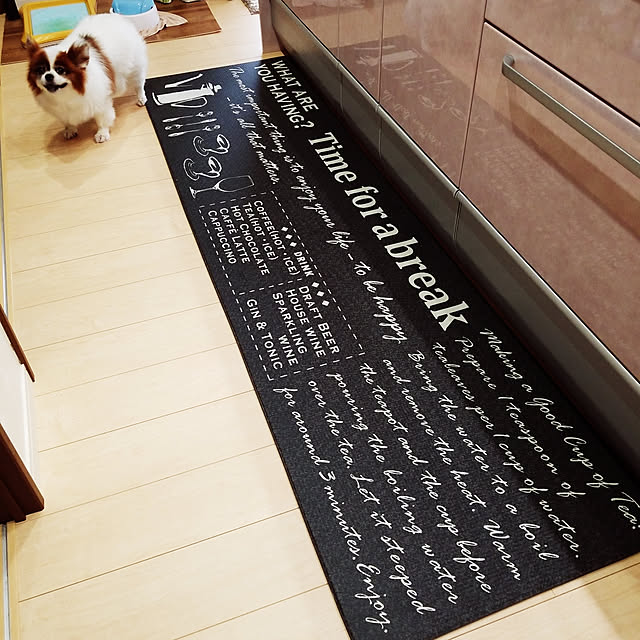 WHAT ARE
YOU HAVING?
The most important thing is to enjoy your life - to be happy
- it's all that matters.
Time for a break
DRINK
COFFEE(HOT · ICE)
TEA(HOT · ICE)
HOT CHOCOLATE
CAFFE LATTE
CAPPUCCINO
DRAFT BEER
HOUSE WINE
SPARKLING WINE
GIN & TONIC
Making a Good Cup of Tea.
Prepare 1 teaspoon of
tealeaves per 1 cup of water.
Bring the water to a boil
and remove the heat. Warm
the teapot and the cup before
pouring the boiling water
over the tea. Let it steeped
for around 3 minutes. Enjoy.